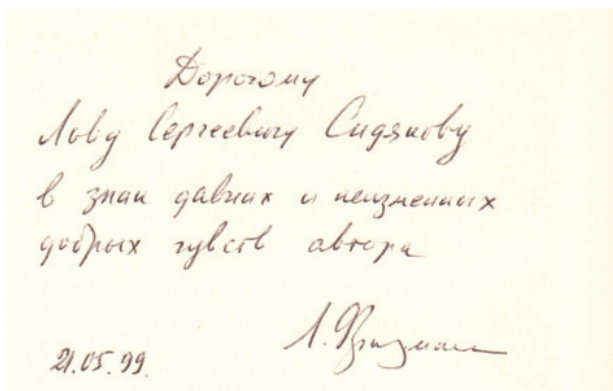 Дорогому
Льву Сергеевичу Сидякову
в знак давних и неизменных
добрых чувств автора
Л. Фризман
21.05.99.